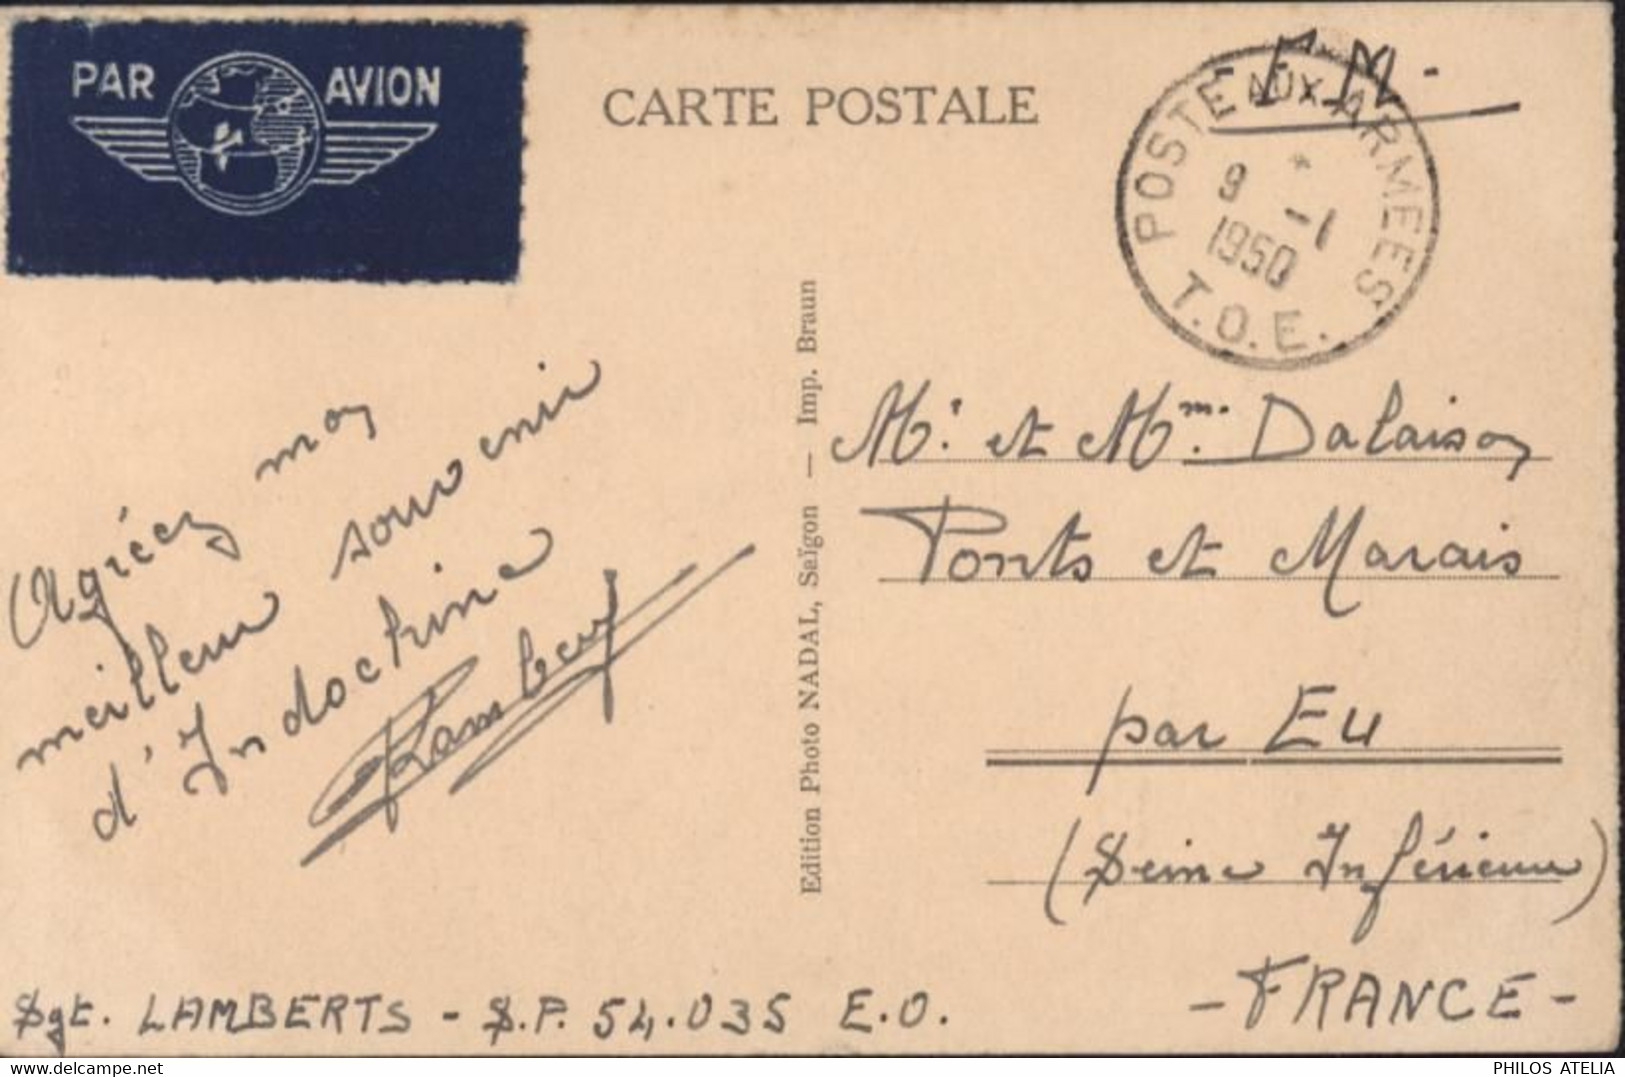 PAR AVION
CARTE POSTALE
F.M.-
POSTE AUX ARMEES
9 -1
1950
T.O.E.
Agréez mon
meilleur souvenir
d'Indochine
Lambert
Edition Photo NADAL, Saïgon — Imp. Braun
Mr. et Mm. Dalaison
Ponts et Marais
par Eu
(Seine Inférieure)
- FRANCE -
Sgt. LAMBERTS - S.P. 54.035 E.O.
delcampe.net
PHILOS ATELIA